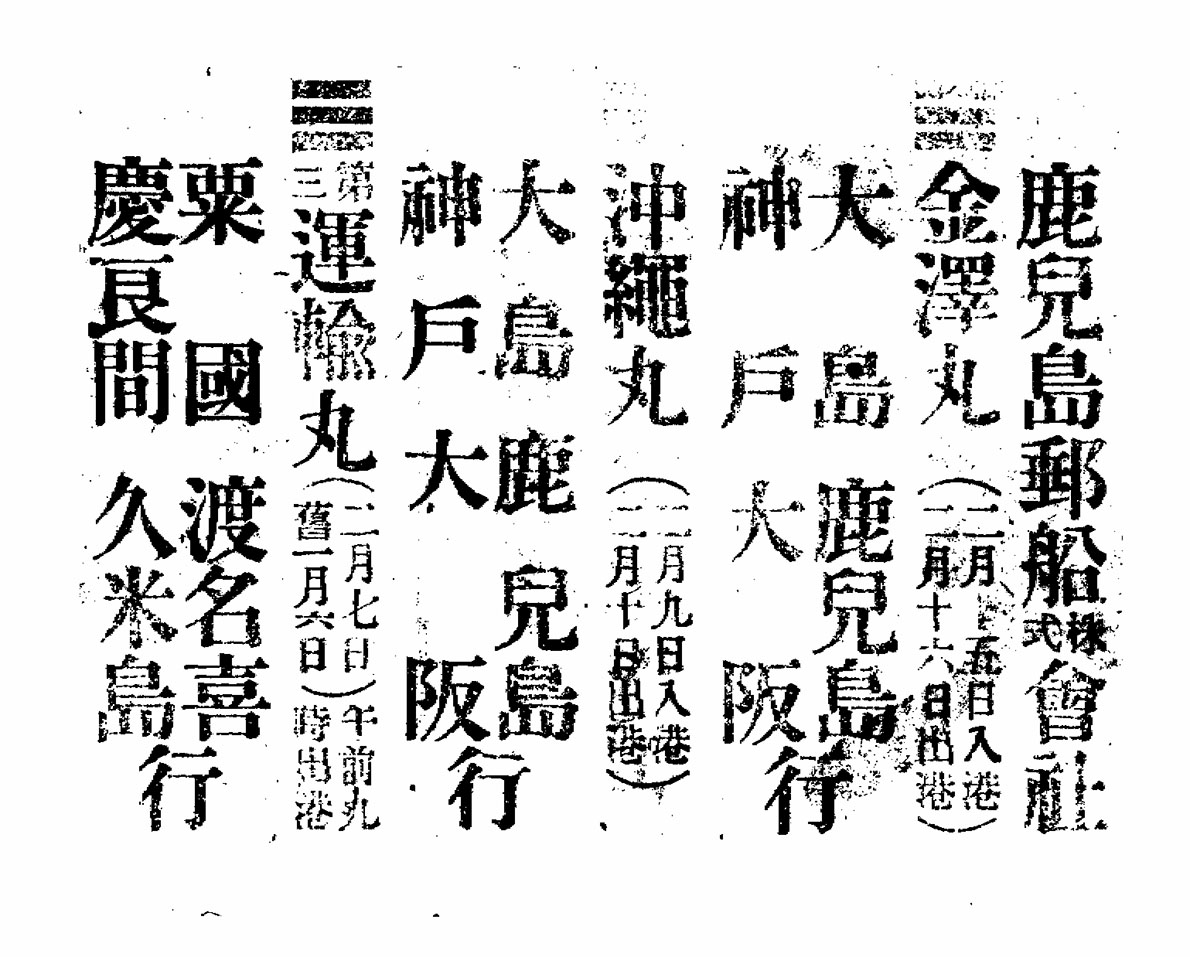 鹿兒島郵船株式會社
金澤丸
(二月十五日入港
二月十六日出港)
大島鹿兒島
神戸大阪
行
沖繩丸
(二月九日入港
二月十日出港)
大島鹿兒島
神戸大阪
行
第三運輸丸
(二月七日
舊一月六日)
午前九
時出港
粟國 渡名喜
慶良間 久米島
行